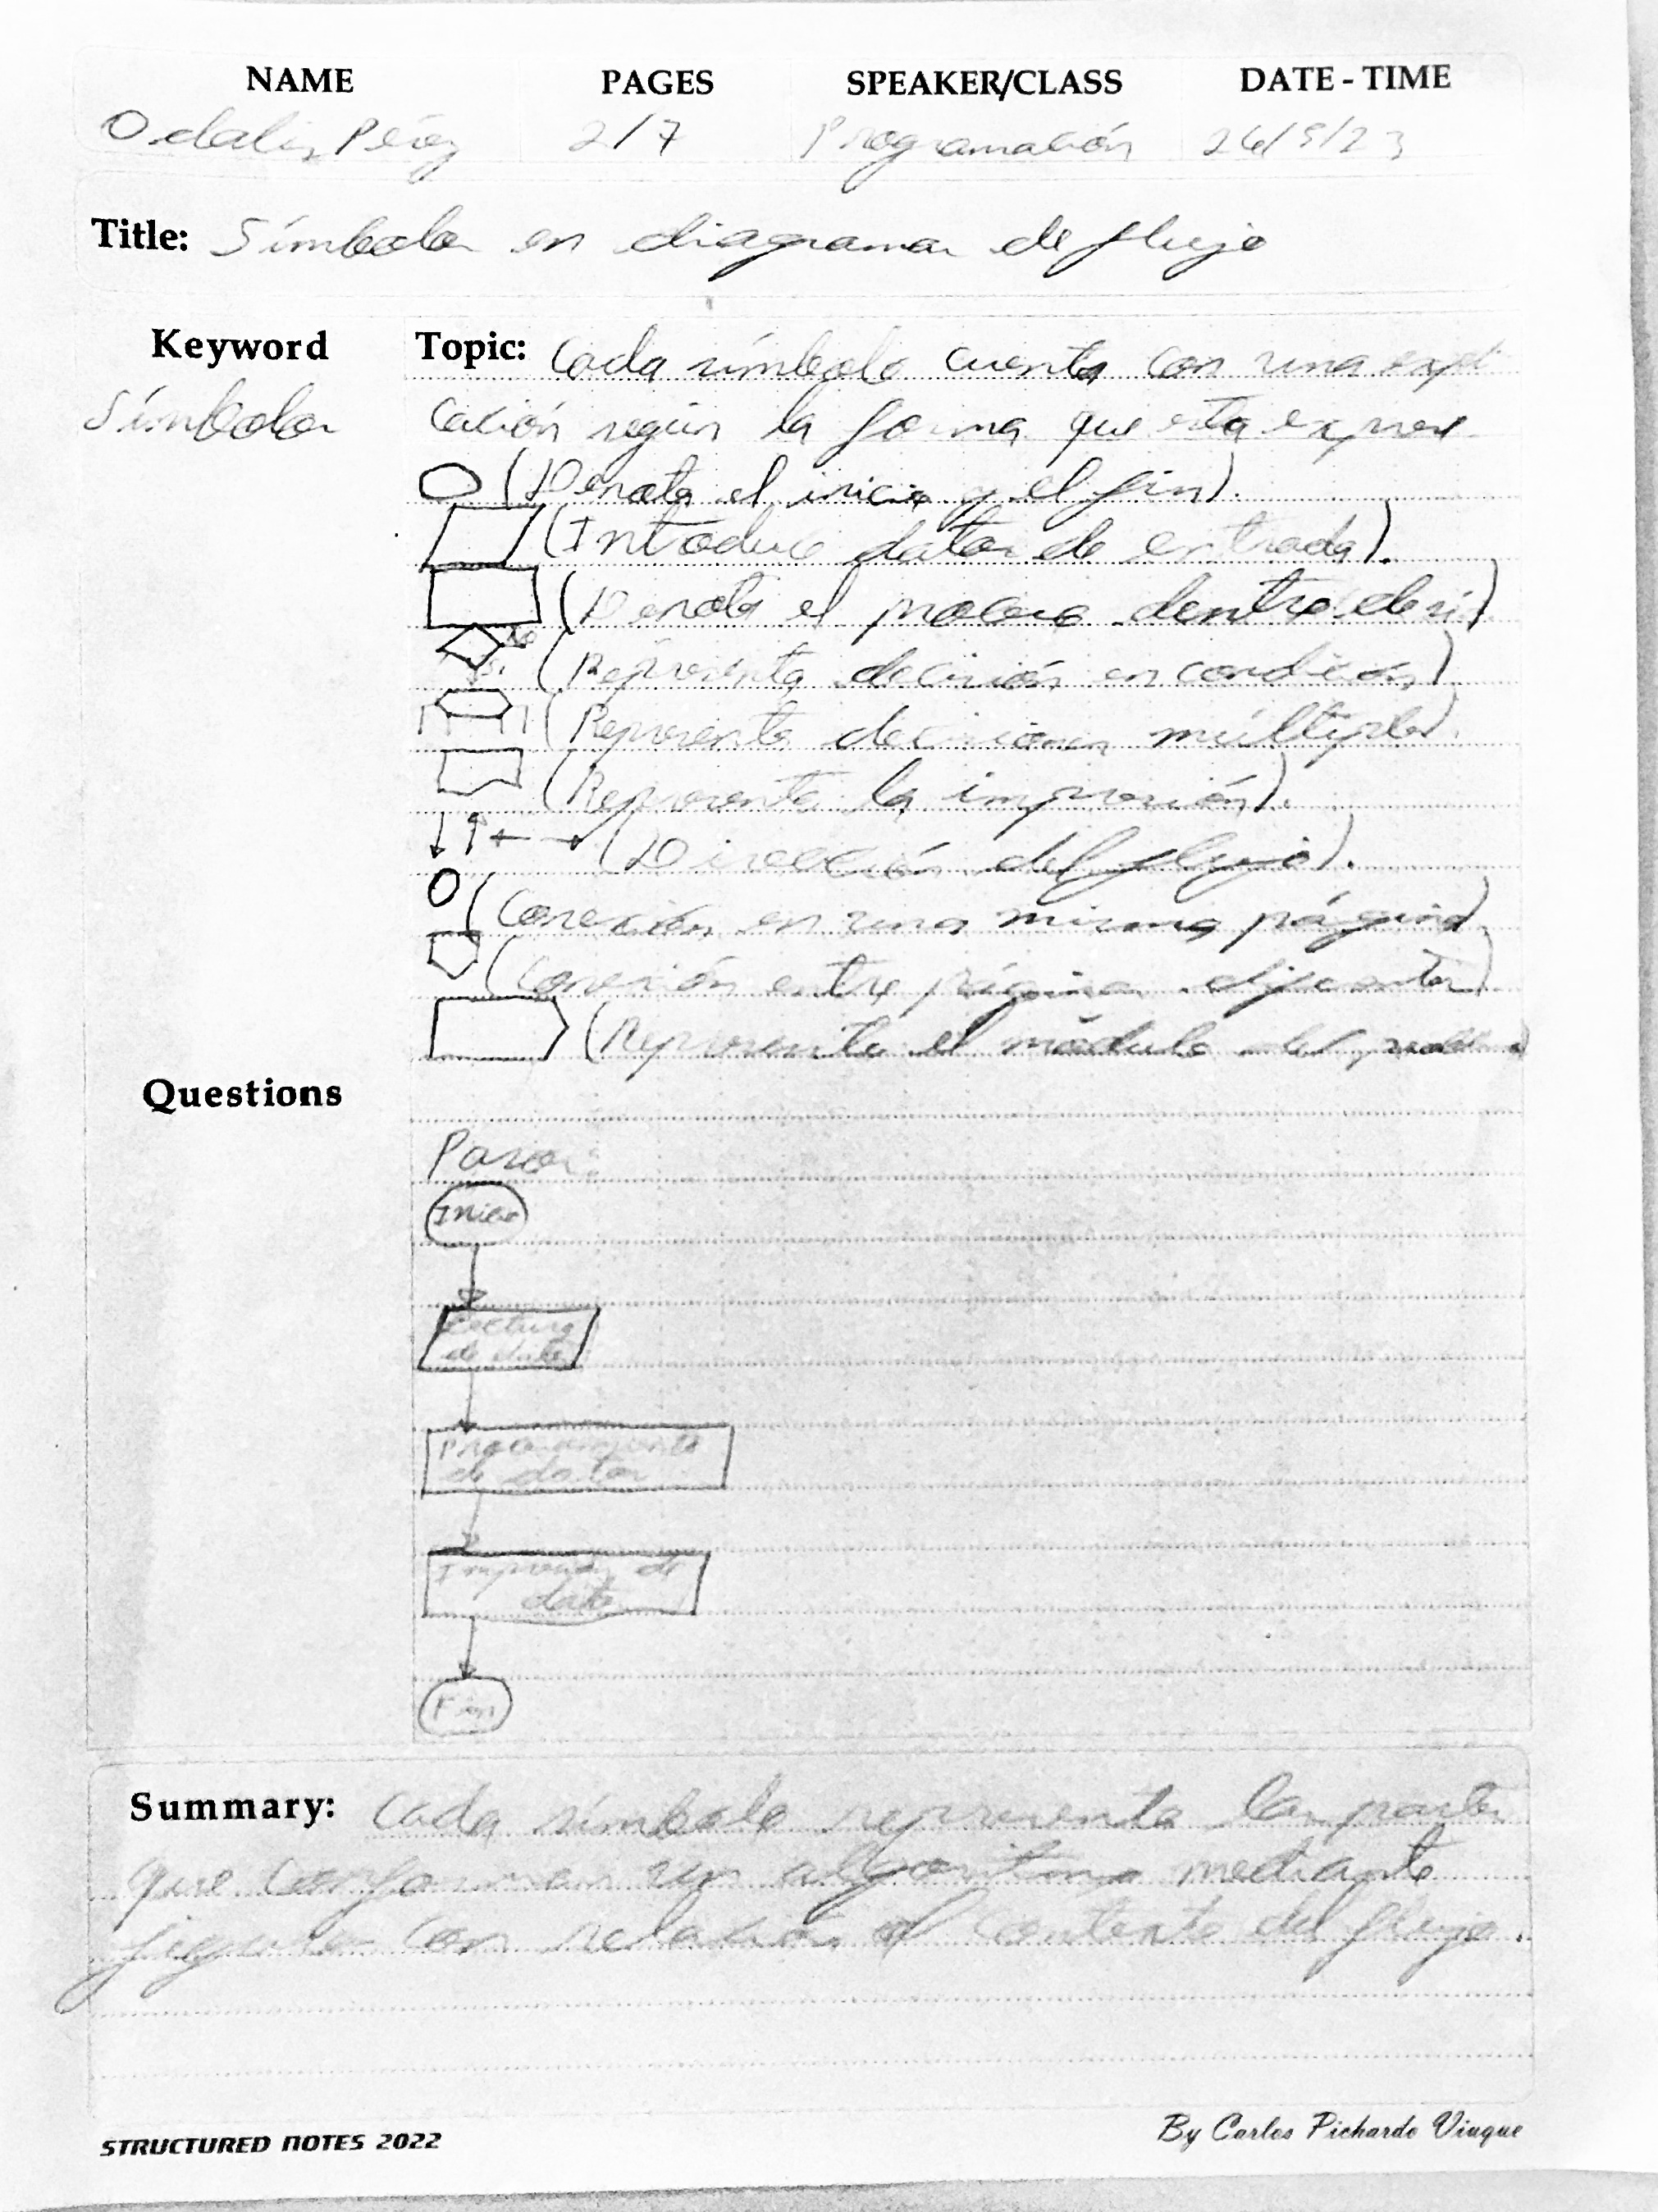 NAME PAGES SPEAKER/CLASS DATE - TIME
Odaliz Pérez 2/7 Programación 26/5/23
Title: Símbolos en diagramas de flujo
Keyword Topic: Cada símbolo cuenta con una expli
Símbolos cación según la forma que esta exprese
(Denota el inicio y el fin).
(Introduce datos de entrada).
(Denota el proceso dentro de sí)
No
Si (Representa decisión en condición)
(Representa decisiones múltiples).
(Representa la impresión).
(Dirección del flujo).
(Conexión en una misma página)
(Conexión entre páginas diferentes)
(Representa el módulo del
Questions
Pasos:
Inicio
Lectura
de datos
Procesamiento
de datos
Impresión de
datos
Fin
Summary: Cada símbolo representa las partes
que conforman un algoritmo mediante
figuras con relación al contexto del flujo.
STRUCTURED NOTES 2022 By Carlos Pichardo Viuque